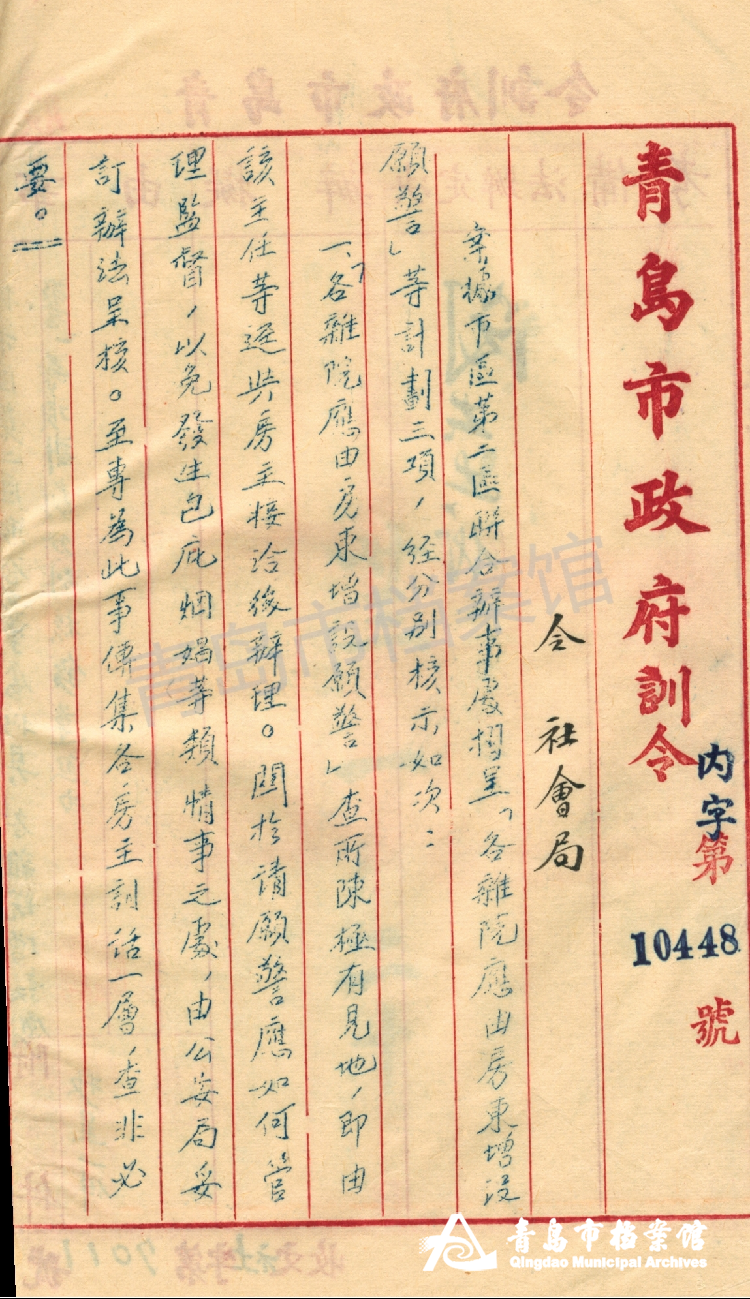 青島市政府訓令
内字第10448號
令 社會局
案據市區第二區聯合辦事處摺呈「各雜院應由房東增設
願警」等計劃三項，經分別核示如次：
一、「各雜院應由房東增設願警」查所陳極有見地，即由
該主任等逕與房主接洽後辦理。關於請願警應如何管
理監督，以免發生包庇烟娼等類情事之處，由公安局妥
訂辦法呈核。至專為此事傳集各房主訓話一層，查非必
要。
青岛市档案馆
青島市档案馆
Qingdao Municipal Archives